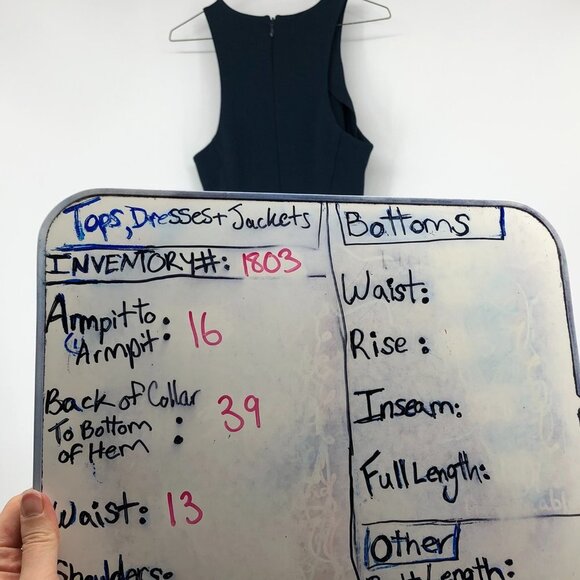 Tops, Dresses + Jackets
INVENTORY#: 1803
Armpit to
Armpit: 16
Back of Collar
To Bottom
of Hem : 39
Waist: 13
Shoulders:
Bottoms
Waist:
Rise:
Inseam:
Full Length:
Other
Length: